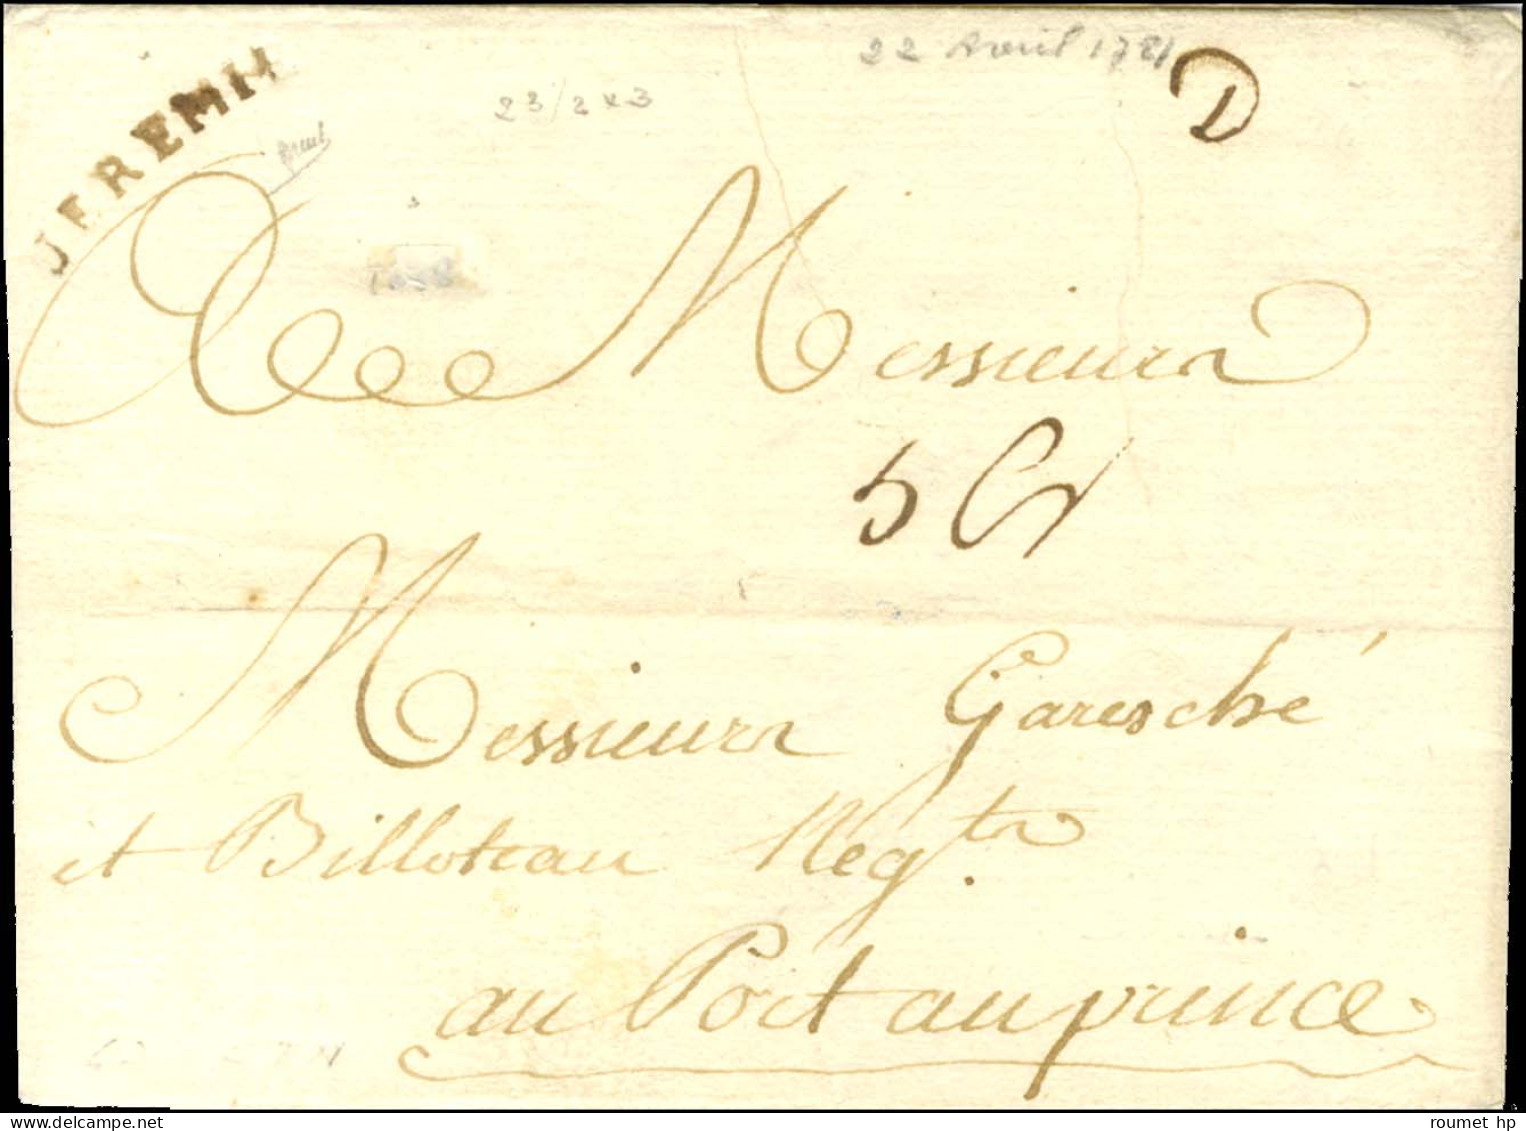 JEREMIE
22 Avril 1781
23/2 x 3
D
A Messieurs
5 Cr
Messieurs Garesché
et Billoteau Negts.
au Port au prince
roumet hp